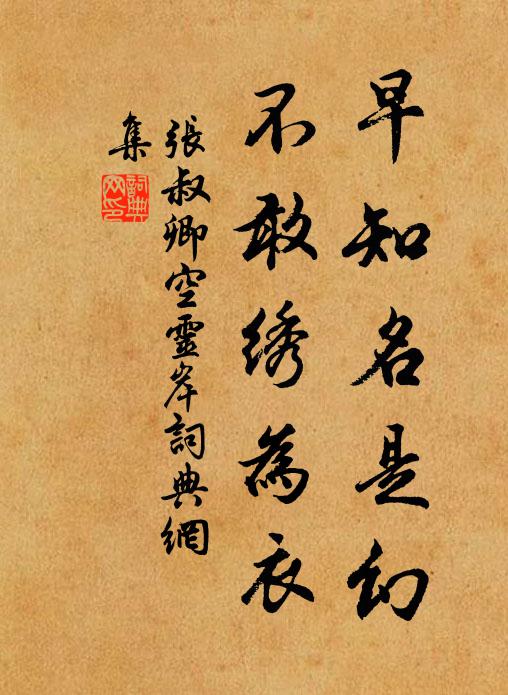 早知名是幻
不敢绣為衣
張叔卿空靈岸詞典網
集
詞典
网印